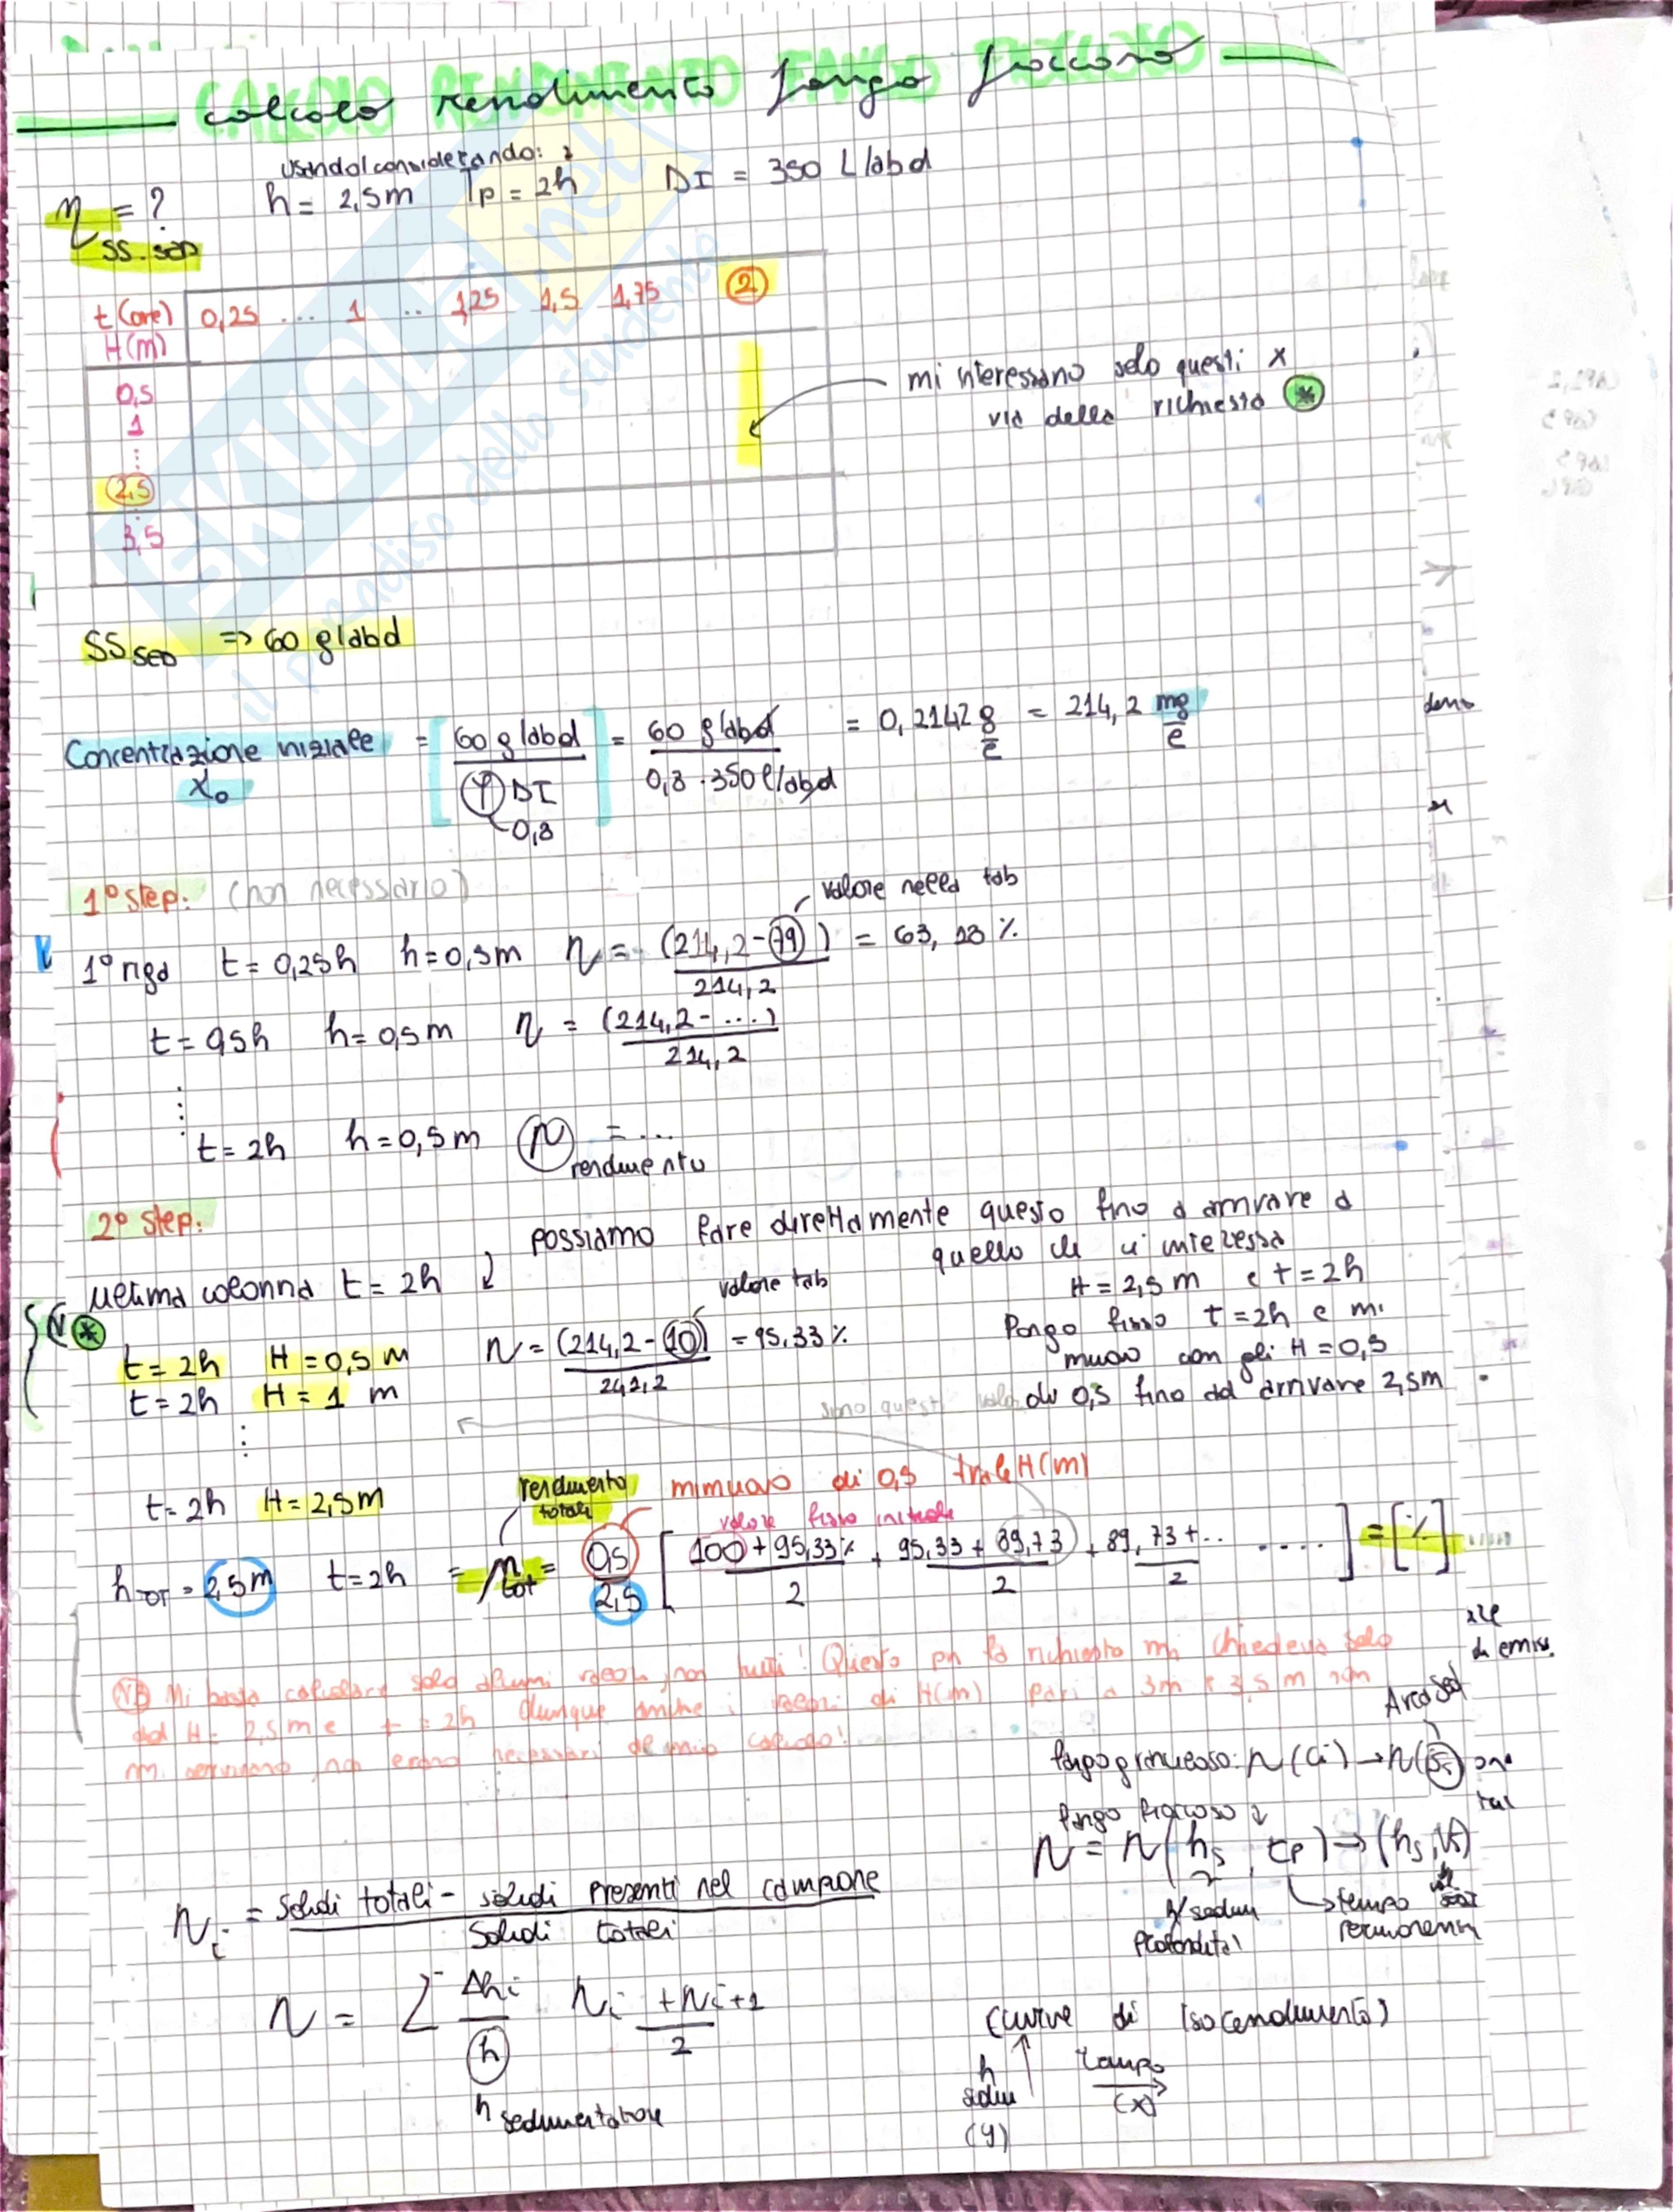 calcolo rendimento fango fioccoso
CALCOLO RENDIMENTO FANGO FIOCCOSO
η SS.SED = ?
considerando:
h = 2,5m Tp = 2h DI = 350 L/abd
t(ore) 0,25 ... 1 .. 1,25 1,5 1,75 2
H(m)
0,5
1
⋮
2,5
⋮
3,5
mi interessano solo questi x
via della richiesta *
SS SED => 60 g/abd
Concentrazione iniziale X₀ = [60 g/abd / φ DI] = 60 g/abd / 0,8 · 350 l/abd = 0,2142 g/l = 214,2 mg/l
0,8
1° step: (non necessario)
valore nella tab
1° riga t = 0,25h h = 0,5m η = (214,2 - 79) / 214,2 = 63,13 %
t = 0,5h h = 0,5m η = (214,2 - ...) / 214,2
⋮
t = 2h h = 0,5m η = ...
rendimento
2° step:
possiamo fare direttamente questo fino a arrivare a
quello che ci interessa
H = 2,5 m e t = 2h
ultima colonna t = 2h
valore tab
Pongo fisso t = 2h e mi
muovo con gli H = 0,5
da 0,5 fino ad arrivare 2,5m
* t = 2h H = 0,5 m η = (214,2 - 10) / 242,2 = 95,33 %
t = 2h H = 1 m
sono questi valori
⋮
t = 2h H = 2,5m
rendimento totale
mi muovo di 0,5 tra le H(m)
valore fisso iniziale
h TOT = 2,5m t = 2h = η tot = 0,5 / 2,5 [ 100 + 95,33% / 2 + 95,33 + 89,73 / 2 + 89,73 + .. / 2 .... ] = [%]
NB Mi basta calcolare solo alcuni valori, non tutti! Questo pn la richiesta mi chiedeva solo
ad H = 2,5 m e t = 2h dunque anche i valori di H(m) pari a 3m e 3,5m non
mi servivano, non erano necessari al mio calcolo!
Area Sed
fango granuloso: η(Ci) → η(Ss)
fango fioccoso ↓
η = η(hs, tp) → (hs, Vs)
profondità sedim
tempo permanenza
ηi = Solidi totali - solidi presenti nel campione / Solidi totali
η = Σ Δhi / h ηi + ηi+1 / 2
h sedimentatore
Curve di isorendimento
h sedim (y)
tempo (x)
SKUOLA.net
il paradiso dello studente